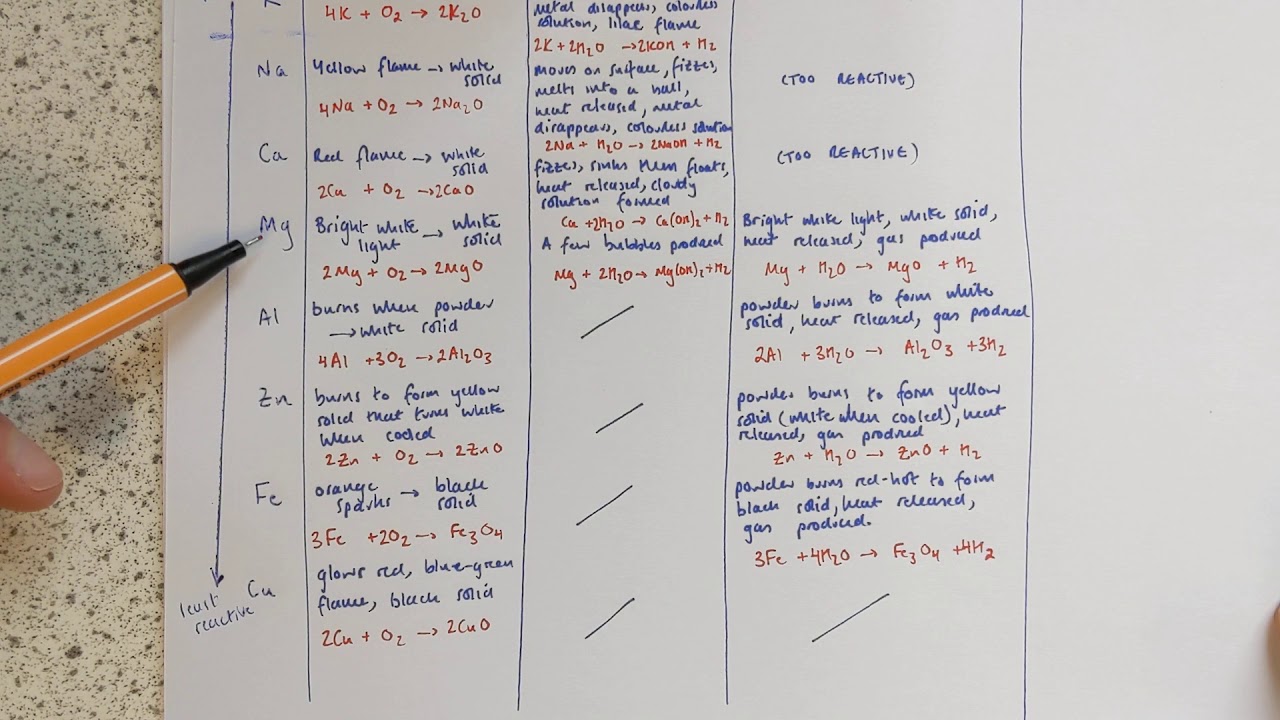 K
4K + O₂ → 2K₂O
metal disappears, colourless
solution, lilac flame
2K + 2H₂O → 2KOH + H₂
Na
Yellow flame → white
solid
4Na + O₂ → 2Na₂O
moves on surface, fizzes,
melts into a ball,
heat released, metal
disappears, colourless solution
2Na + H₂O → 2NaOH + H₂
(TOO REACTIVE)
Ca
Red flame → white
solid
2Ca + O₂ → 2CaO
fizzes, sinks then floats,
heat released, cloudy
solution formed
Ca + 2H₂O → Ca(OH)₂ + H₂
(TOO REACTIVE)
Mg
Bright white → white
light solid
2Mg + O₂ → 2MgO
A few bubbles produced
Mg + 2H₂O → Mg(OH)₂ + H₂
Bright white light, white solid,
heat released, gas produced
Mg + H₂O → MgO + H₂
Al
burns when powder
→ white solid
4Al + 3O₂ → 2Al₂O₃
powder burns to form white
solid, heat released, gas produced
2Al + 3H₂O → Al₂O₃ + 3H₂
Zn
burns to form yellow
solid that turns white
when cooled
2Zn + O₂ → 2ZnO
powder burns to form yellow
solid (white when cooled), heat
released, gas produced
Zn + H₂O → ZnO + H₂
Fe
orange → black
sparks solid
3Fe + 2O₂ → Fe₃O₄
powder burns red-hot to form
black solid, heat released,
gas produced.
3Fe + 4H₂O → Fe₃O₄ + 4H₂
least
reactive
Cu
glows red, blue-green
flame, black solid
2Cu + O₂ → 2CuO